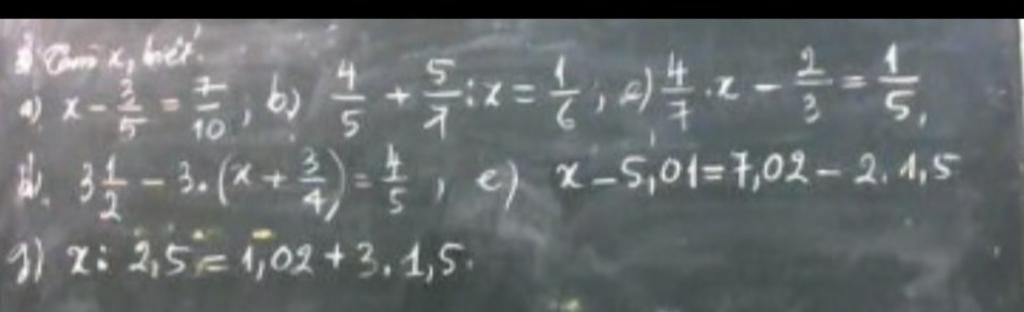 Tìm x, biết:
a) x - 3/5 = 7/10, b) 4/5 + 5/7 : x = 1/6, c) 4/7 . x - 2/3 = 1/5,
d. 3 1/2 - 3. (x + 3/4) = 4/5, e) x - 5,01 = 7,02 - 2. 1,5
g) x : 2,5 = 1,02 + 3. 1,5.